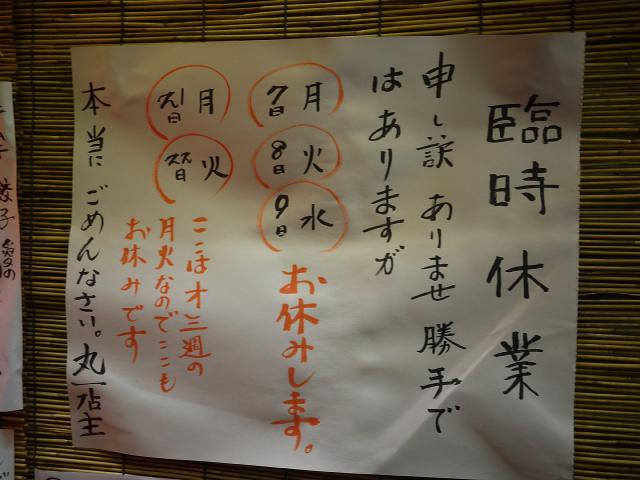 臨時休業
申し訳ありませ勝手で
はありますが
月7日
火8日
水9日
お休みします。
月21日
火22日
ここはオ三週の
月火なのでここも
お休みです
本当にごめんなさい。丸一店主
餃子